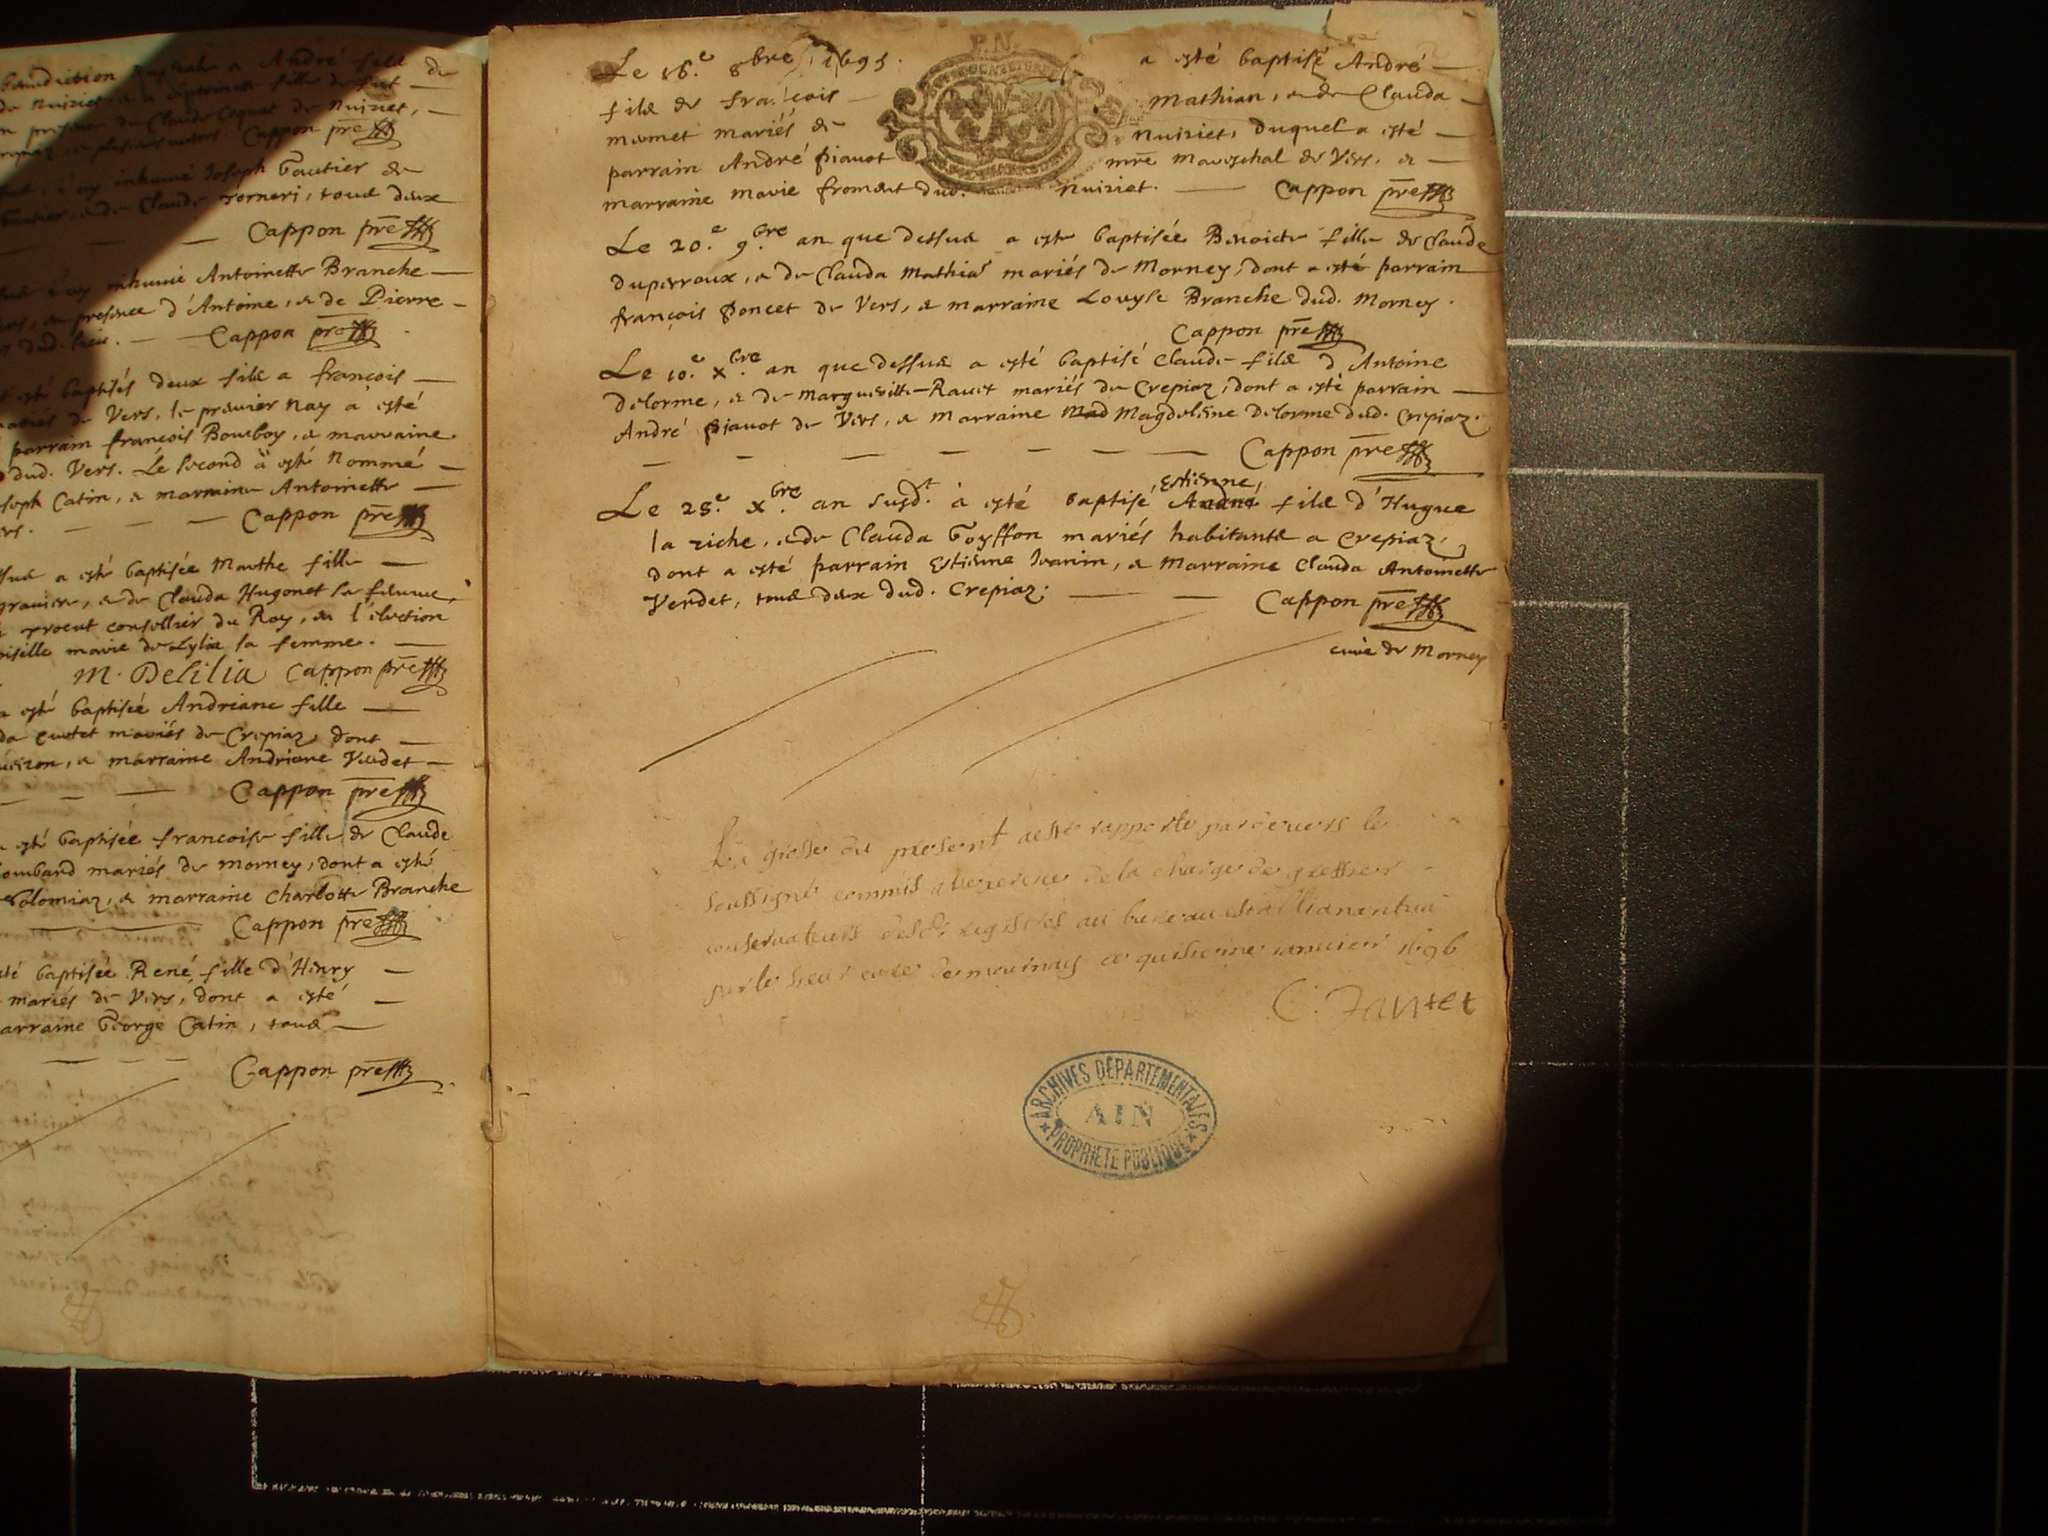 de Nuiziet
Cappon pre
inhumé Joseph Gautier de
de Claude Torneri, tous deux
Cappon pre
inhumé Antoinette Branche
presence d'Antoine, & de Pierre
dud. lieu. Cappon pre
esté baptisés deux fils a françois
mariés de Vers, le premier nay a esté
parrain françois Bourboy, & marraine
dud. Vers. Le second a esté Nommé
Joseph Catin, & marraine Antoinette
Cappon pre
a esté baptisée Marthe fille
de Clauda Hugonet sa femme,
conseillier du Roy, en l'élection
marie de Lylia sa femme.
M. Delilia Cappon pre
esté baptisée Andriane fille
mariés de Crepiaz, dont
& marraine Andriane Verdet
Cappon pre
esté baptisée francoise fille de Claude
mariés de Morney, dont a esté
& marraine Charlotte Branche
Cappon pre
esté baptisée René fille d'Henry
mariés de Vers, dont a esté
marraine George Catin, tous
Cappon pre
Le 16.e 8bre 1695. a esté baptisé André
fils de françois Mathian, & de Clauda
momet mariés de Nuiziet, duquel a esté
parrain André Piauot mre mareschal de Vers, &
marraine marie froment dud. Nuiziet. Cappon pre
Le 20.e 9.bre an que dessus a esté baptisée Benoicte fille de Claude
duperroux, & de Clauda Mathias mariés de Morney, dont a esté parrain
françois Poncet de Vers, & marraine Louyse Branche dud. Morney.
Cappon pre
Le 10.e X.bre an que dessus a esté baptisé Claude fils d'Antoine
Delorme, & de Margueritte Rauet mariés de Crepiaz, dont a esté parrain
André Piauot de Vers, & Marraine Mad Magdeleine Delorme dud. Crepiaz.
Cappon pre
Estienne,
Le 25.e X.bre an susd.t a esté baptisé André fils d'Hugue
la riche, & de Clauda Goyffon mariés habitants a Crepiaz,
dont a esté parrain Estienne Ivanin, & Marraine Clauda Antoinette
Verdet, tous deux dud. Crepiaz. Cappon pre
curé de Morney
La grosse du present a esté rapportée pardevers le
soussigné commis a l'exercice de la charge de greffier
conservateurs desd. registres au bureau establi a nantua
par le sieur curé de mournay ce quinsieme janvier 1696
C. Jantet
P.N.
ARCHIVES DÉPARTEMENTALES
AIN
PROPRIÉTÉ PUBLIQUE